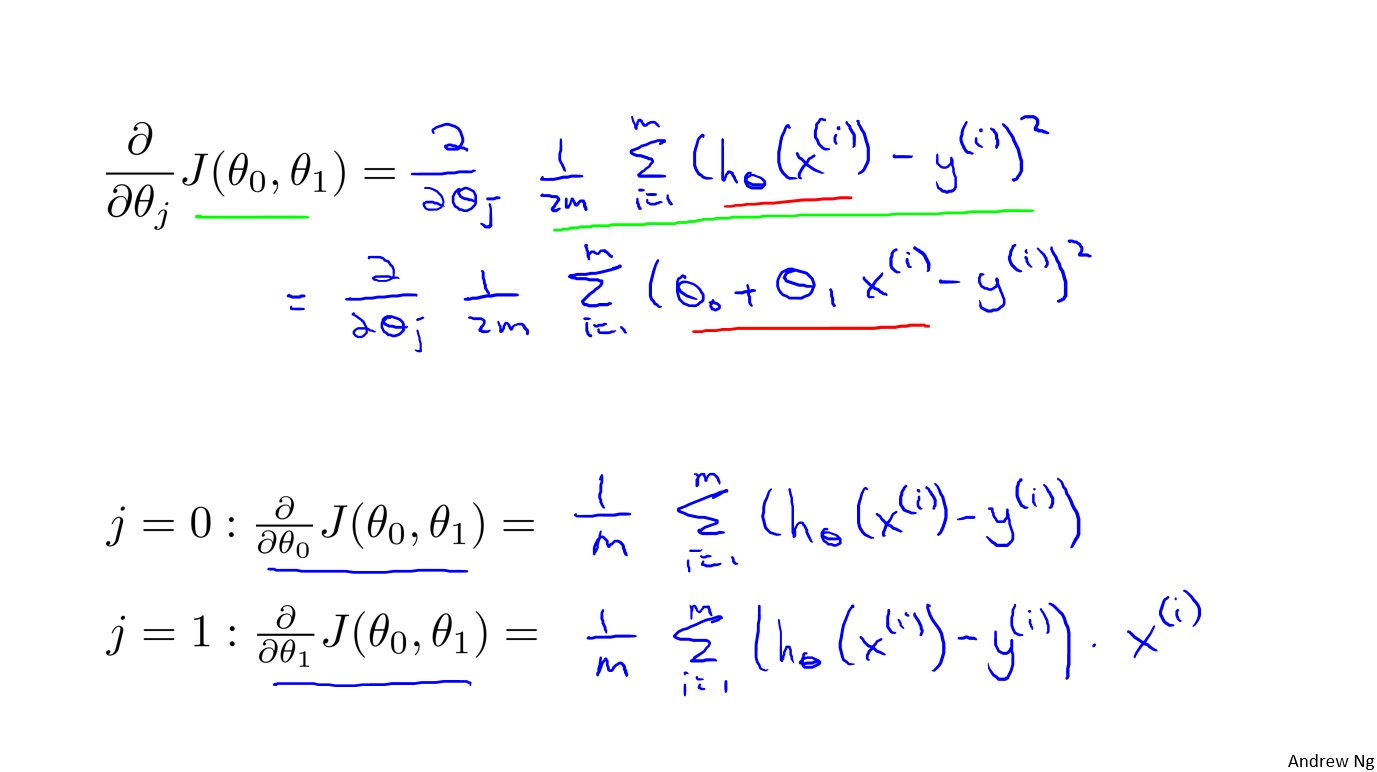 ∂/∂θⱼ J(θ₀, θ₁) = ∂/∂θⱼ 1/2m Σᵢ₌₁ᵐ (h_θ(x⁽ⁱ⁾) - y⁽ⁱ⁾)²
= ∂/∂θⱼ 1/2m Σᵢ₌₁ᵐ (θ₀ + θ₁ x⁽ⁱ⁾ - y⁽ⁱ⁾)²
j = 0 : ∂/∂θ₀ J(θ₀, θ₁) = 1/m Σᵢ₌₁ᵐ (h_θ(x⁽ⁱ⁾) - y⁽ⁱ⁾)
j = 1 : ∂/∂θ₁ J(θ₀, θ₁) = 1/m Σᵢ₌₁ᵐ (h_θ(x⁽ⁱ⁾) - y⁽ⁱ⁾) · x⁽ⁱ⁾
Andrew Ng